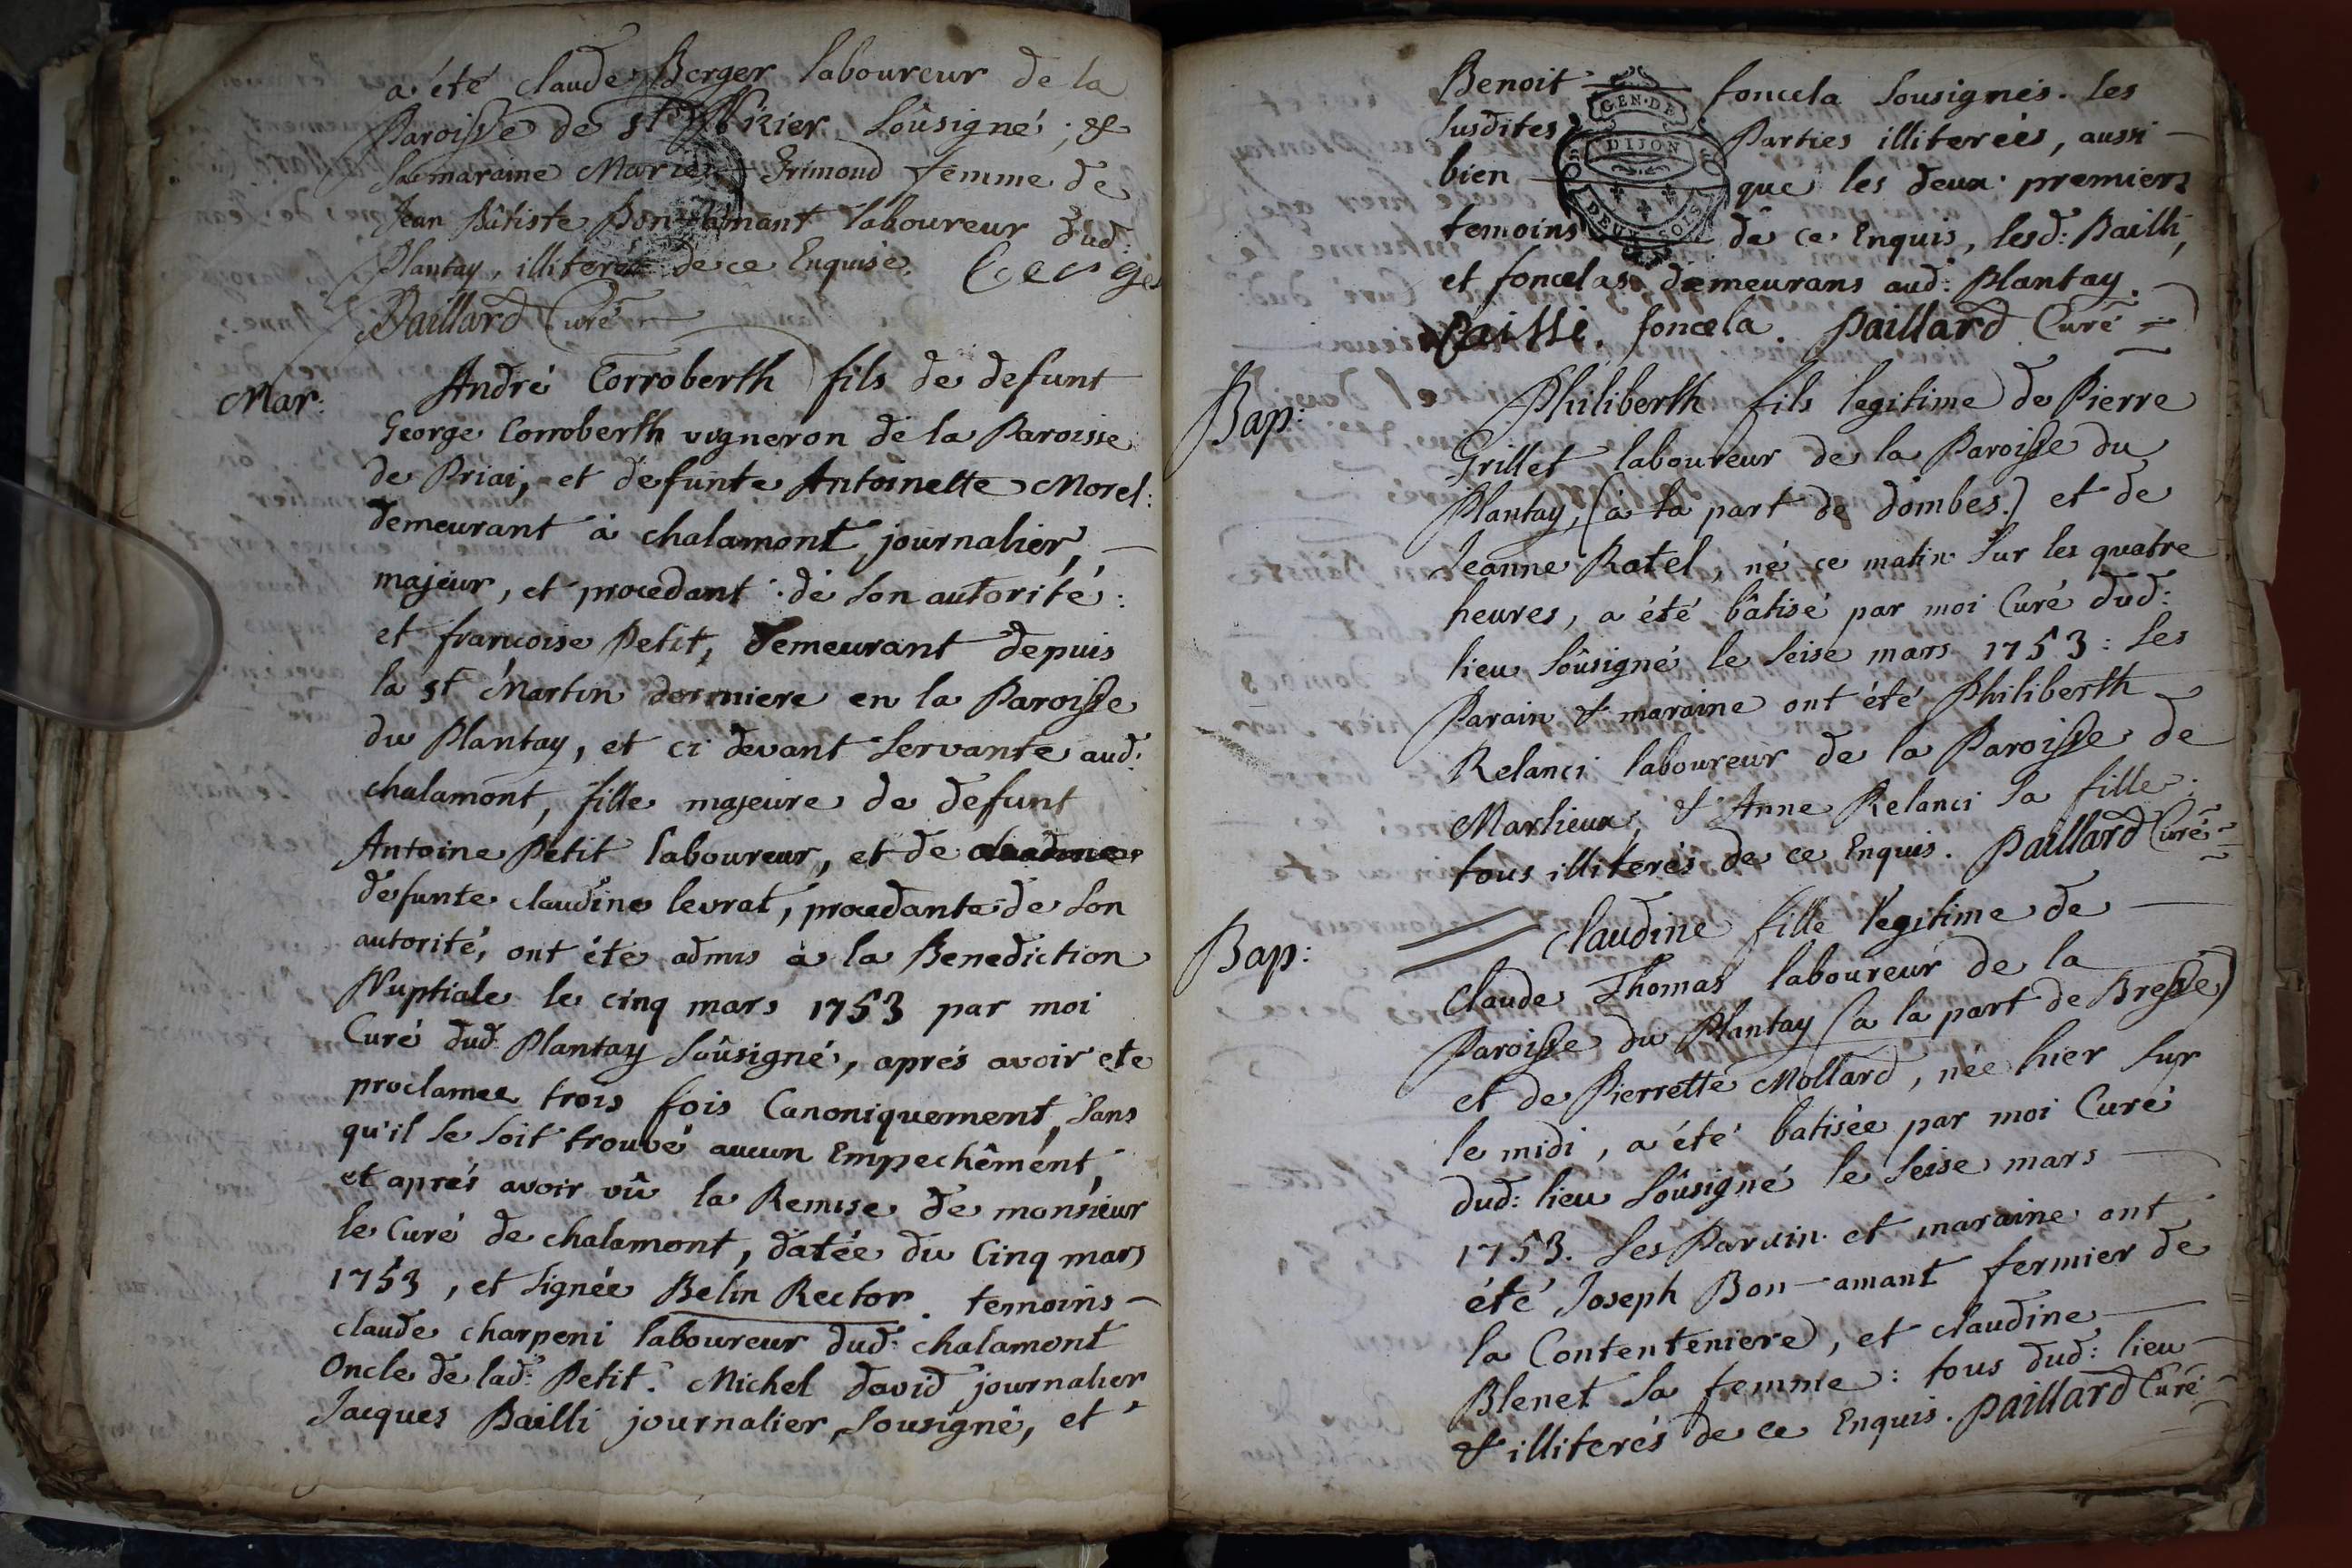 a été claude Berger laboureur de la
Paroisse de st Nizier soûsigné, &
sa maraine Marie Frimond femme de
Jean Bâtiste Bon-amant laboureur dud:
Plantay, illiterée de ce Enquise.
Paillard Curé
Mar:
André Corroberth fils de defunt
George Corroberth vigneron de la Paroisse
de Priai, et defunte Antoinette Morel:
demeurant à chalamont journalier,
majeur, et procedant de son autorité:
et francoise Petit, demeurant depuis
la st Martin derniere en la Paroisse
du Plantay, et ci devant servante aud:
chalamont, fille majeure de defunt
Antoine Petit laboureur, et de
defunte claudine levrat, procedante de son
autorité, ont été admis à la Benediction
Nuptiale le cinq mars 1753 par moi
Curé dud: Plantay soûsigné, aprés avoir eté
proclamee trois fois Canoniquement, sans
qu'il se soit trouvé aucun Empechêment,
et aprés avoir vû la Remise de monsieur
le Curé de chalamont, datée du Cinq mars
1753, et signée Belin Rector. temoins
claude charpeni laboureur dud: chalamont
Oncle de lad: Petit. Michel david journalier
Jacques Bailli journalier, sousigné, et
Benoit foncela sousignés. les
susdites Parties illiterées, aussi
bien que les deux premiers
temoins de ce Enquis, lesd: Bailli,
et foncelas demeurans aud: Plantay.
Bailli. foncela. Paillard Curé
GEN. DE
DIJON
DEUX SOLS
Bap:
Philiberth fils legitime de Pierre
Grillet laboureur de la Paroisse du
Plantay, (à la part de dombes.) et de
Jeanne Ratel, né ce matin sur les quatre
heures, a été bâtisé par moi Curé dud:
lieu soûsigné le seise mars 1753: les
Parain & maraine ont été Philiberth
Relanci laboureur de la Paroisse de
Marlieux, & Anne Relanci sa fille:
tous illiterés de ce Enquis. Paillard Curé
Bap:
Claudine fille legitime de
claude Thomas laboureur de la
Paroisse du Plantay (a la part de Bresse)
et de Pierrette Mollard, née hier sur
le midi, a été batisée par moi Curé
dud: lieu soûsigné le seise mars
1753. Les Parain et maraine ont
été Joseph Bon-amant fermier de
la Contenteniere, et claudine
Blenet sa femme: tous dud: lieu
& illiterés de ce Enquis. Paillard Curé